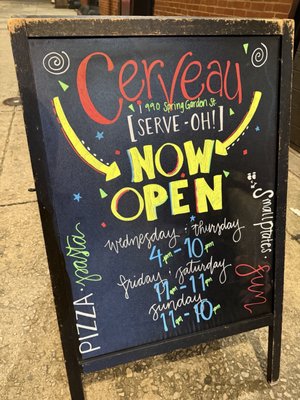 Cerveau
990 Spring Garden St
[SERVE-OH!]
NOW
OPEN
Wednesday · Thursday
4pm-10pm
Friday · Saturday
11am-11pm
Sunday
11am-10pm
PIZZA · pasta
Small plates
fun